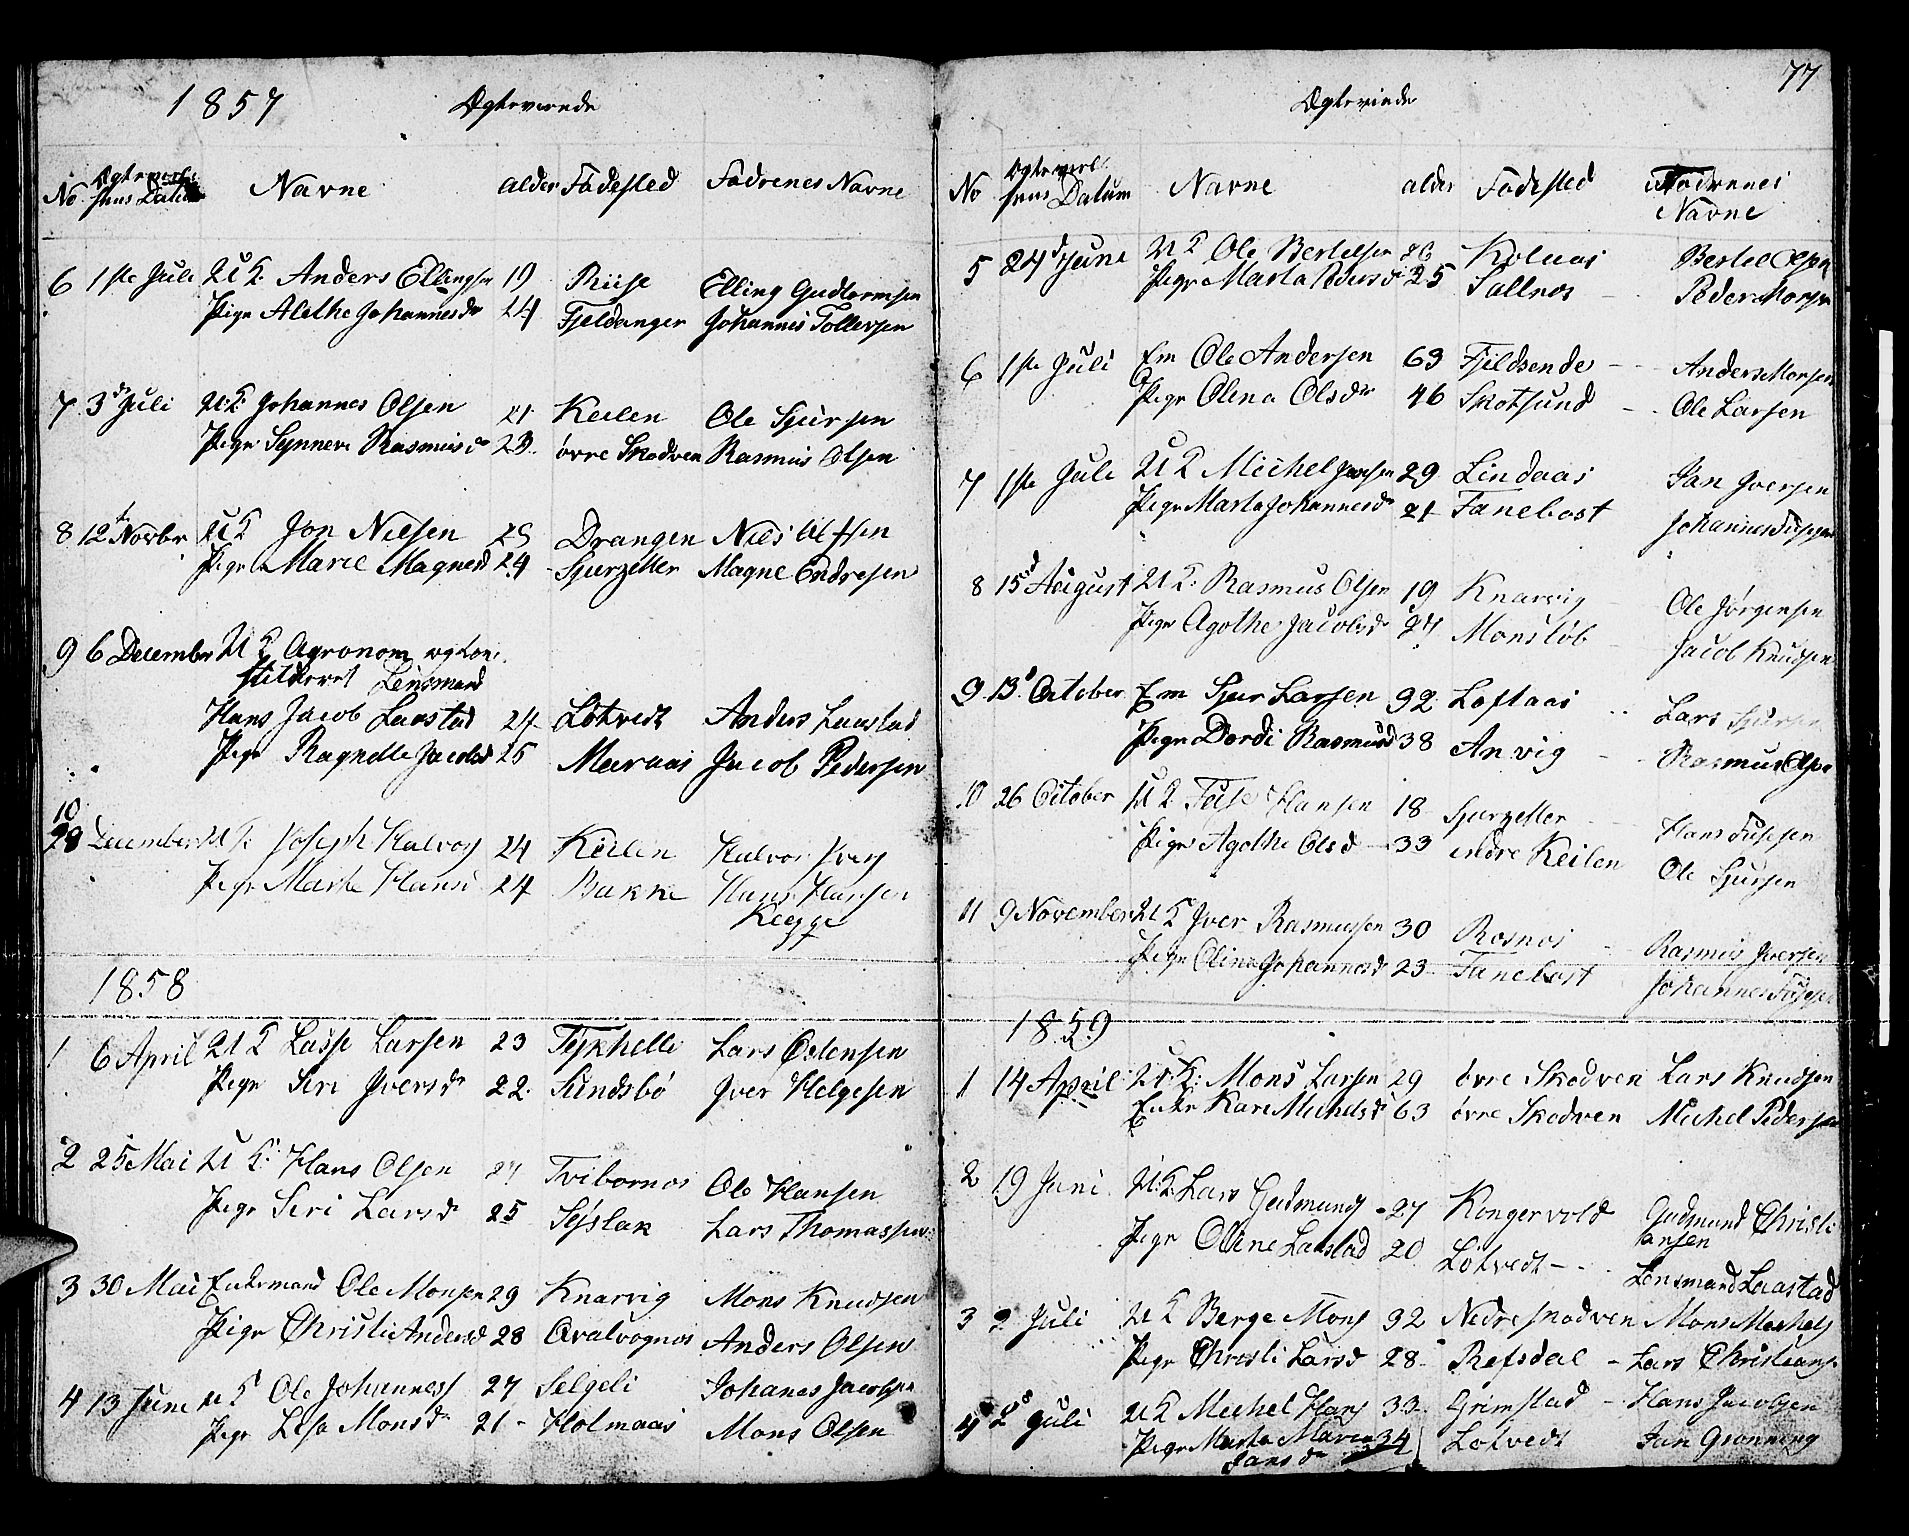 1857 Ægteviede
No Ægtevielsens Datum Navne alder Fødested Fædrenes Navne
6 1ste Juli U K: Anders Ellingsen 19 Riise Elling Gudtormsen
Pige Alethe Johannesdr 24 Fjeldanger Johannes Tollevsen
7 3d Juli U:K: Johannes Olsen 21 Keilen Ole Sjursen
Pige Synneve Rasmusdr 23 øvre Skodven Rasmus Olsen
8 12te Novbr U K Jon Nilsen 25 Drangen Niels
Pige Marie Magnesd 24 Magne Endresen
9 6 December U K Agronom og kon
stitueret Lensmand
Hans Jacob Laastad 24 Løtvedt Anders Laastad
Pige Ragnelle Jacobsd 25 Meeraas Jacob Pedersen
10 28 December U K: Joseph Halvors 24 Keilen Halvor Ivers
Pige Marte Hansd 24 Bakke Hans Hansen
1858
1 6 April U K Lasse Larsen 23 Lars Østensen
Pige Siri Iversdr 22 Sundsbø Iver Helgesen
2 25 Mai U K: Hans Olsen 27 Tvibornos Ole Hansen
Pige Siri Larsd 25 Lars Thomassen
3 30 Mai Enkemand Ole Monsen 29 Knarvig Mons Knudsen
Pige Christi Andersd 28 Qvalvognos Anders Olsen
4 13 June U K Ole Johanness 27 Selgeli Johanes Jacobsen
Pige Lisa Monsdr 21 Holmaas Mons Olsen
77
Ægteviede
No Ægtevielsens Datum Navne alder Fødested Fædrenes
Navne
5 24d June U K Ole Bertelsen 26 Kolaas Bertel Olsen
Pige Marta Pedersd 25 Peder Monsen
6 1ste Juli Em Ole Andersen 63 Fjeldsende Anders Monsen
Pige Olina Olsdr 46 Skotsund Ole Larsen
7 1ste Juli U K Michel Jansen 29 Lindaas Jan Iversen
Pige Marta Johannesdr 21 Fanebost Johannes
8 15d August U K: Rasmus Olsen 19 Knarvig Ole Jørgensen
Pige Agothe Jacobsdr 24 Monsløb Jacob Knudsen
9 13d October Em Sjur Larsen 32 Loftaas Lars Sjursen
Pige Dordi Rasmusd 38 Anvig Rasmus Olsen
10 26 October U K Hansen 18 Hans
Pige Agothe Olsd 33 indre Keilen Ole Sjursen
11 9 November U K Iver Rasmussen 30 Rosnos Rasmus Iversen
Pige Olina Johannesd 23 Fanebost Johannes
1859
1 14 April U:K: Mons Larsen 29 øvre Skodven Lars Knudsen
Enke Kari Michelsd 63 øvre Skodven Michel Pedersen
2 19 Juni U:K: Lars Gudmunds 27 Kongervold Gudmund Christi
ansen
Pige Oline Laastad 20 Løtvedt Lensmand Laastad
3 2 Juli U K Berge Mons 32 Nedre Skodven Mons Michels
Pige Christi Larsd 28 Refsdal Lars Christians
4 2d Juli U K Michel Hans 33 Grimstad Hans Jacobsen
Pige Marta Maria 34 Løtvedt Jan Grønning
Jansd